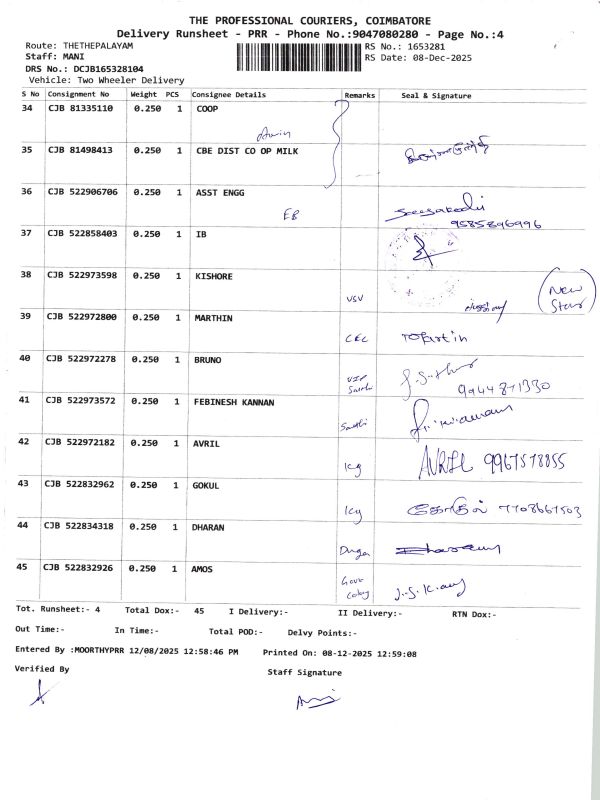 THE PROFESSIONAL COURIERS, COIMBATORE
Delivery Runsheet - PRR - Phone No.:9047080280 - Page No.:4
Route: THETHEPALAYAM
RS No.: 1653281
Staff: MANI
RS Date: 08-Dec-2025
DRS No.: DCJB165328104
Vehicle: Two Wheeler Delivery
S No Consignment No Weight PCS Consignee Details Remarks Seal & Signature
34 CJB 81335110 0.250 1 COOP
35 CJB 81498413 0.250 1 CBE DIST CO OP MILK
36 CJB 522906706 0.250 1 ASST ENGG
EB
9585896996
37 CJB 522858403 0.250 1 IB
38 CJB 522973598 0.250 1 KISHORE
VSV
(New Star)
39 CJB 522972800 0.250 1 MARTHIN
CEC Martin
40 CJB 522972278 0.250 1 BRUNO
VIP
9944871330
41 CJB 522973572 0.250 1 FEBINESH KANNAN
42 CJB 522972182 0.250 1 AVRIL
Icy AVRIL 9967578855
43 CJB 522832962 0.250 1 GOKUL
Icy கோகுல் 7708661503
44 CJB 522834318 0.250 1 DHARAN
Durga
45 CJB 522832926 0.250 1 AMOS
Govt
Tot. Runsheet:- 4 Total Dox:- 45 I Delivery:- II Delivery:- RTN Dox:-
Out Time:- In Time:- Total POD:- Delvy Points:-
Entered By :MOORTHYPRR 12/08/2025 12:58:46 PM Printed On: 08-12-2025 12:59:08
Verified By Staff Signature